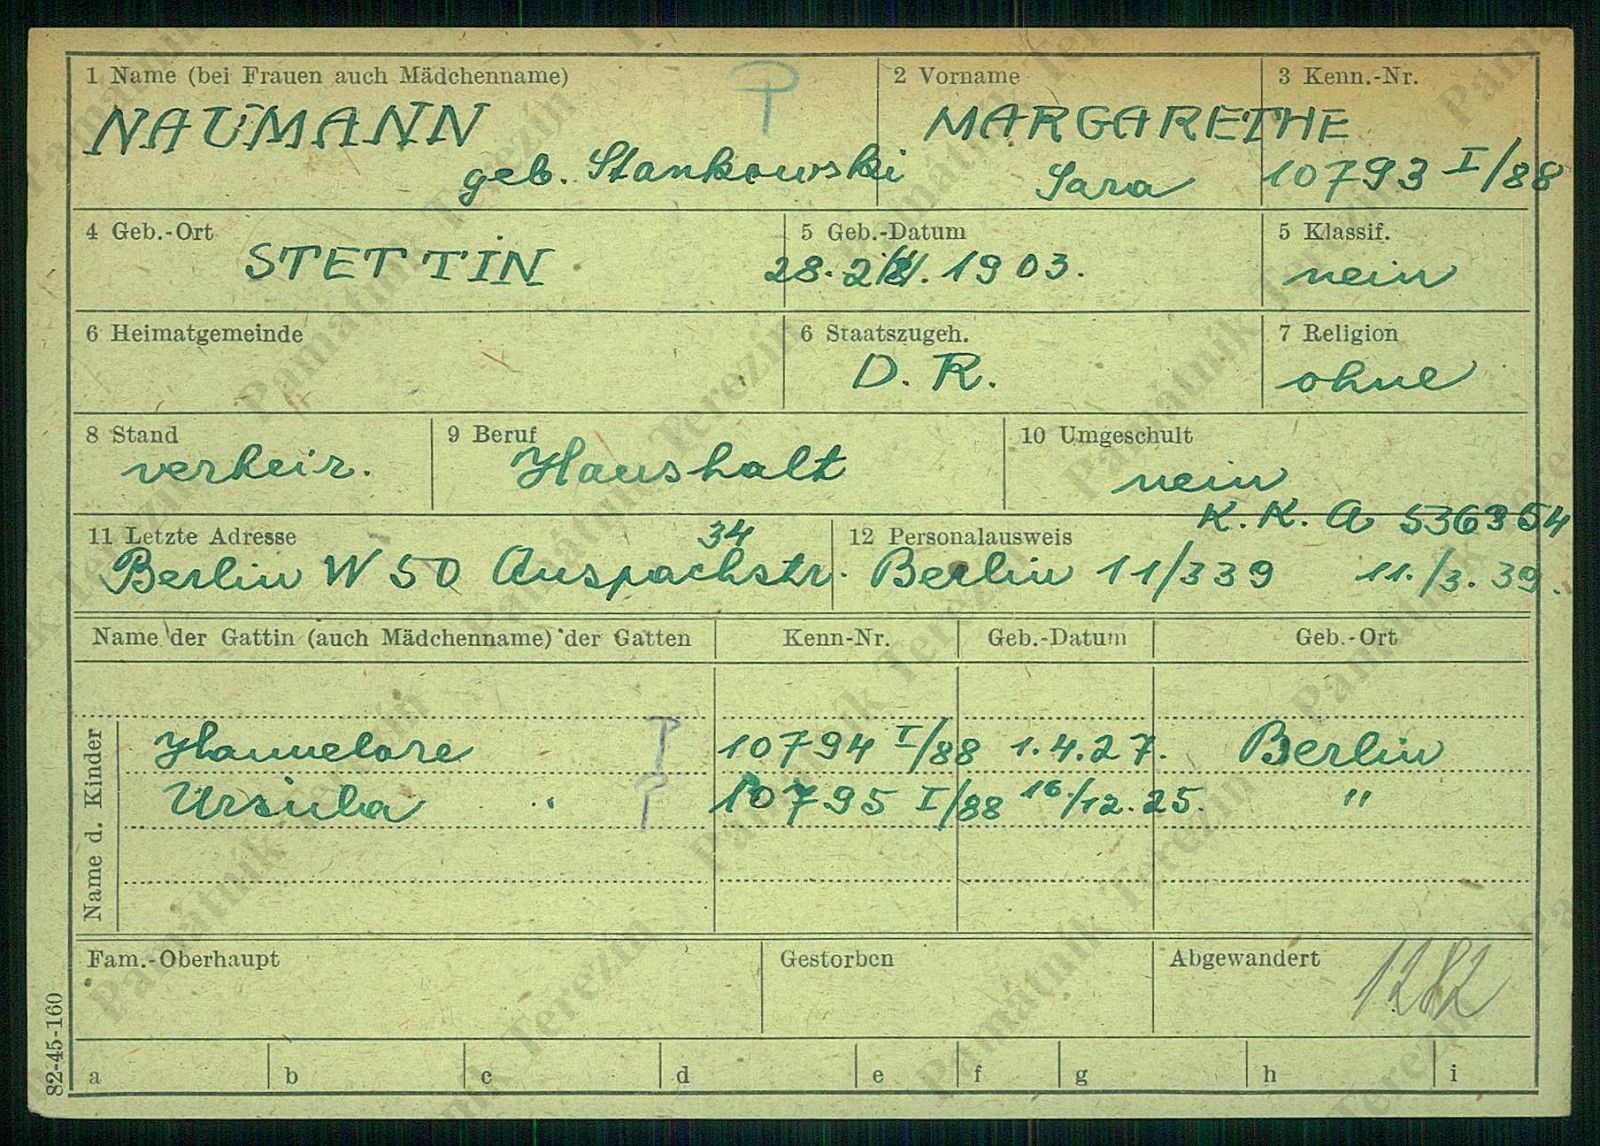 1 Name (bei Frauen auch Mädchenname)
NAUMANN
geb. Stankowski
2 Vorname
MARGARETHE
Sara
3 Kenn.-Nr.
10793 I/88
4 Geb.-Ort
STETTIN
5 Geb.-Datum
28. 1903.
5 Klassif.
nein
6 Heimatgemeinde
6 Staatszugeh.
D. R.
7 Religion
ohne
8 Stand
verheir.
9 Beruf
Haushalt
10 Umgeschult
nein
11 Letzte Adresse
34
Berlin W 50 Auspachstr.
12 Personalausweis
K. K. A 536354
Berlin 11/339 11./3. 39.
Name der Gattin (auch Mädchenname) der Gatten
Kenn-Nr.
Geb.-Datum
Geb.-Ort
Name d. Kinder
Hannelore 10794 I/88 1.4.27. Berlin
Ursula " 10795 I/88 16./12.25. "
Fam.-Oberhaupt
Gestorben
Abgewandert
1282
a b c d e f g h i
82-45-160
Památník Terezín